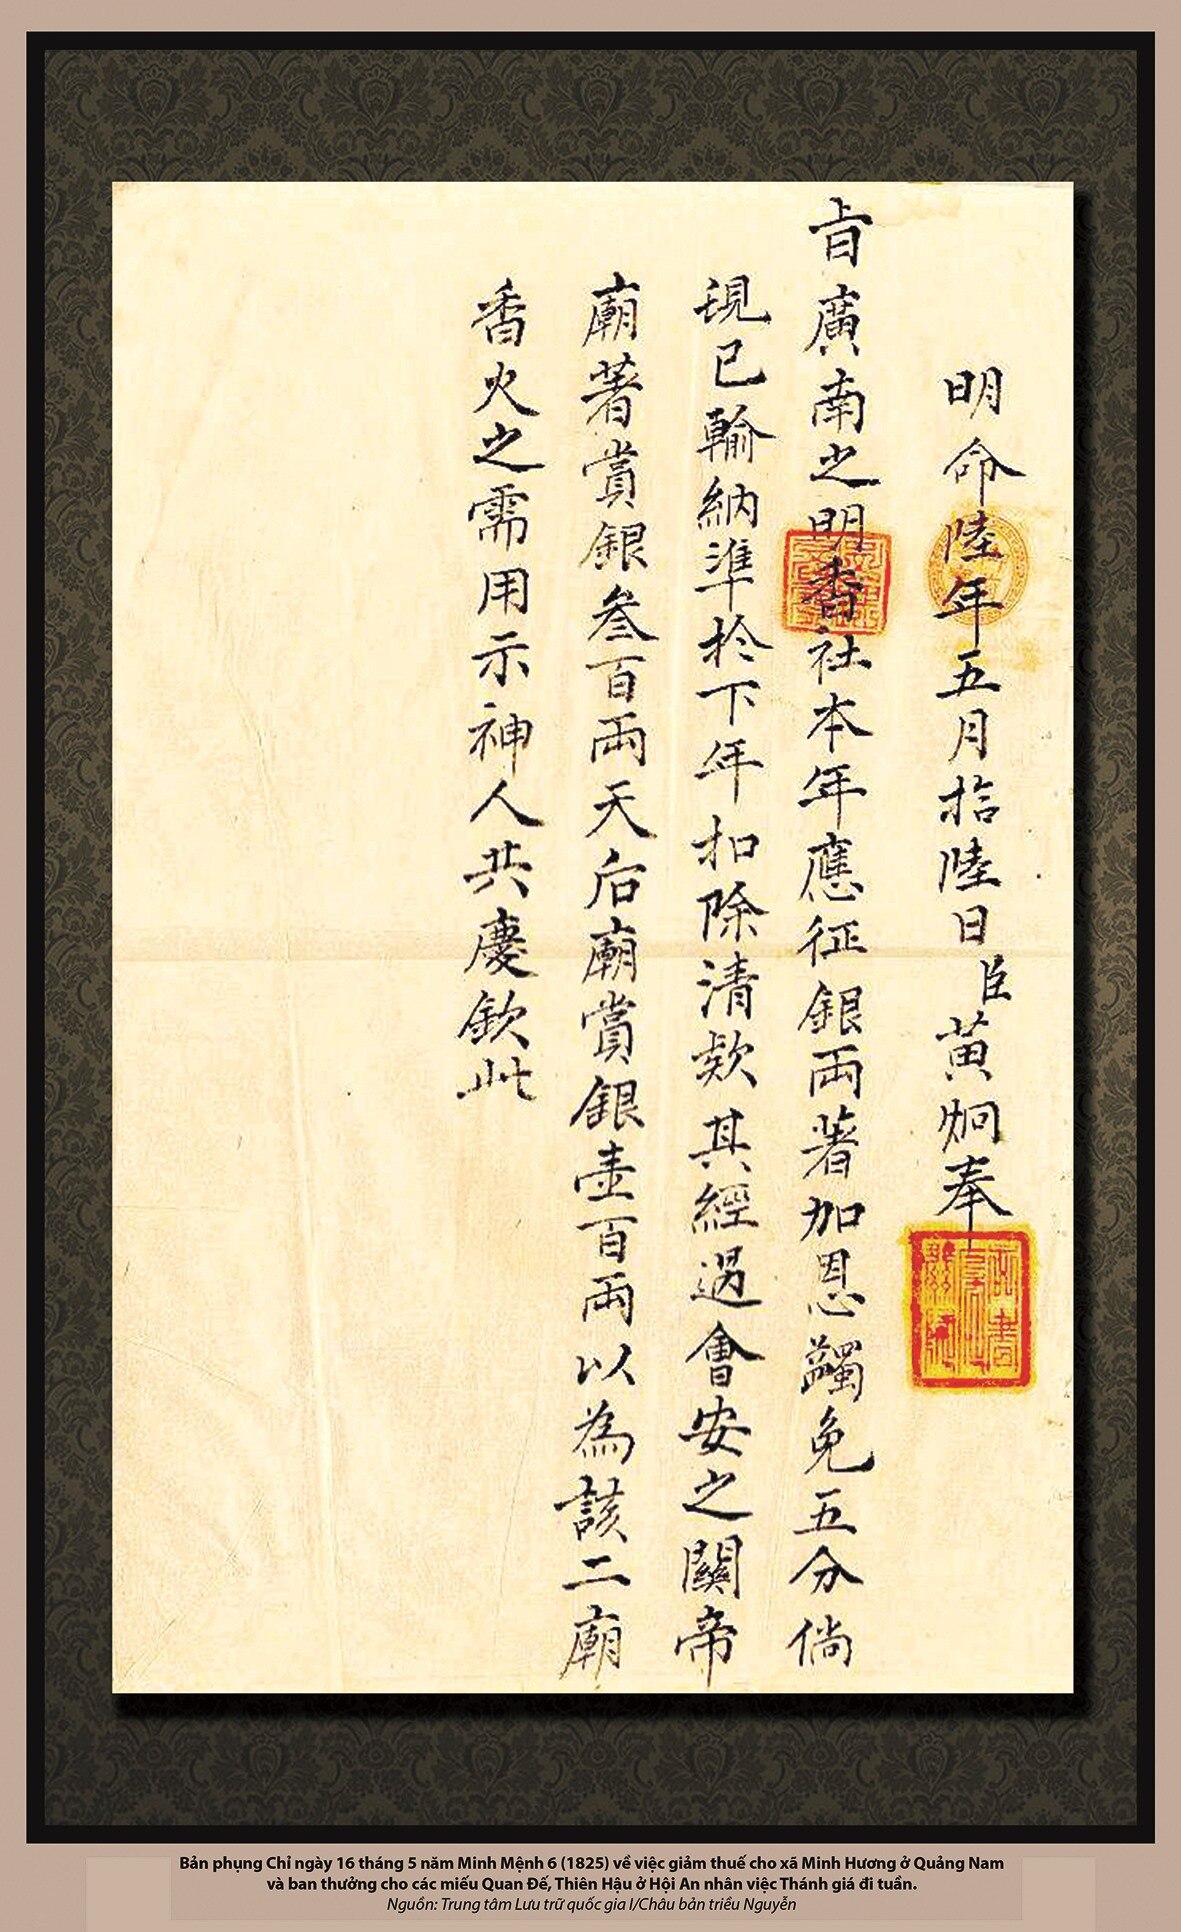 明命陸年五月拾陸日臣黃炯奉
旨廣南之明香社本年應征銀兩著加恩蠲免五分倘
現已輸納準於下年扣除清款其經過會安之關帝
廟著賞銀叄百兩天后廟賞銀壹百兩以為該二廟
香火之需用示神人共慶欽此
Bản phụng Chỉ ngày 16 tháng 5 năm Minh Mệnh 6 (1825) về việc giảm thuế cho xã Minh Hương ở Quảng Nam
và ban thưởng cho các miếu Quan Đế, Thiên Hậu ở Hội An nhân việc Thánh giá đi tuần.
Nguồn: Trung tâm Lưu trữ quốc gia I/Châu bản triều Nguyễn